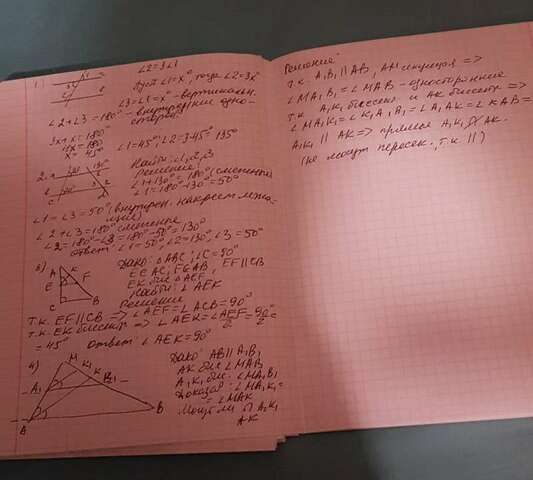 1) ∠2=3∠1
Пусть ∠1=x°, тогда ∠2=3x°
∠3=∠1=x° - вертикальн.
∠2+∠3=180° - внутренние одно-
сторон.
3x+x=180°
4x=180°
x=45°
∠1=45°, ∠2=3·45=135°
2. Найти: ∠1,2,3
Решение
∠1+130°=180° (смежные)
∠1=180°-130°=50°
∠1=∠3=50° (внутрен. накрест лежа-
щие)
∠2+∠3=180° смежные
∠2=180°-∠3=180°-50°=130°
ответ: ∠1=50°, ∠2=130°, ∠3=50°
3) A K
E F
C B
Дано: △ABC, ∠C=90°
E∈AC, F∈AB, EF∥CB
EK бис. ∠AEF
Найти: ∠AEK
Решение
т.к. EF∥CB => ∠AEF=∠ACB=90°
т.к. EK биссект. => ∠AEK=∠AEF/2=90°/2=
=45° ответ ∠AEK=90°
4) M
K₁
A₁ K B₁
A B
Дано: AB∥A₁B₁
AK бис. ∠MAB
A₁K₁ бис. ∠MA₁B₁
Доказать: ∠MA₁K₁=
=∠MAK
Могут ли A₁K₁
AK
Решение
т.к. A₁B₁∥AB, AM секущая =>
∠MA₁B₁=∠MAB - односторонние
т.к. A₁K₁ биссект и AK биссект =>
∠MA₁K₁=∠K₁A₁B₁=∠A₁AK=∠KAB=>
A₁K₁∥AK=> прямые A₁K₁ AK
(не могут пересек., т.к. ∥)